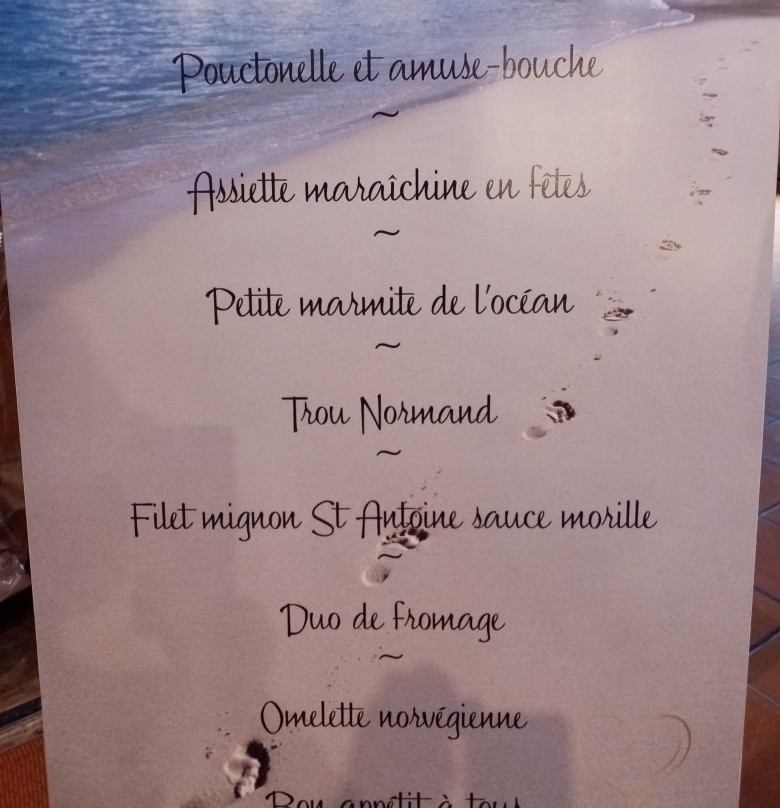 Pouctonelle et amuse-bouche
~
Assiette maraîchine en fêtes
~
Petite marmite de l'océan
~
Trou Normand
~
Filet mignon St Antoine sauce morille
~
Duo de fromage
~
Omelette norvégienne
Bon appétit à tous